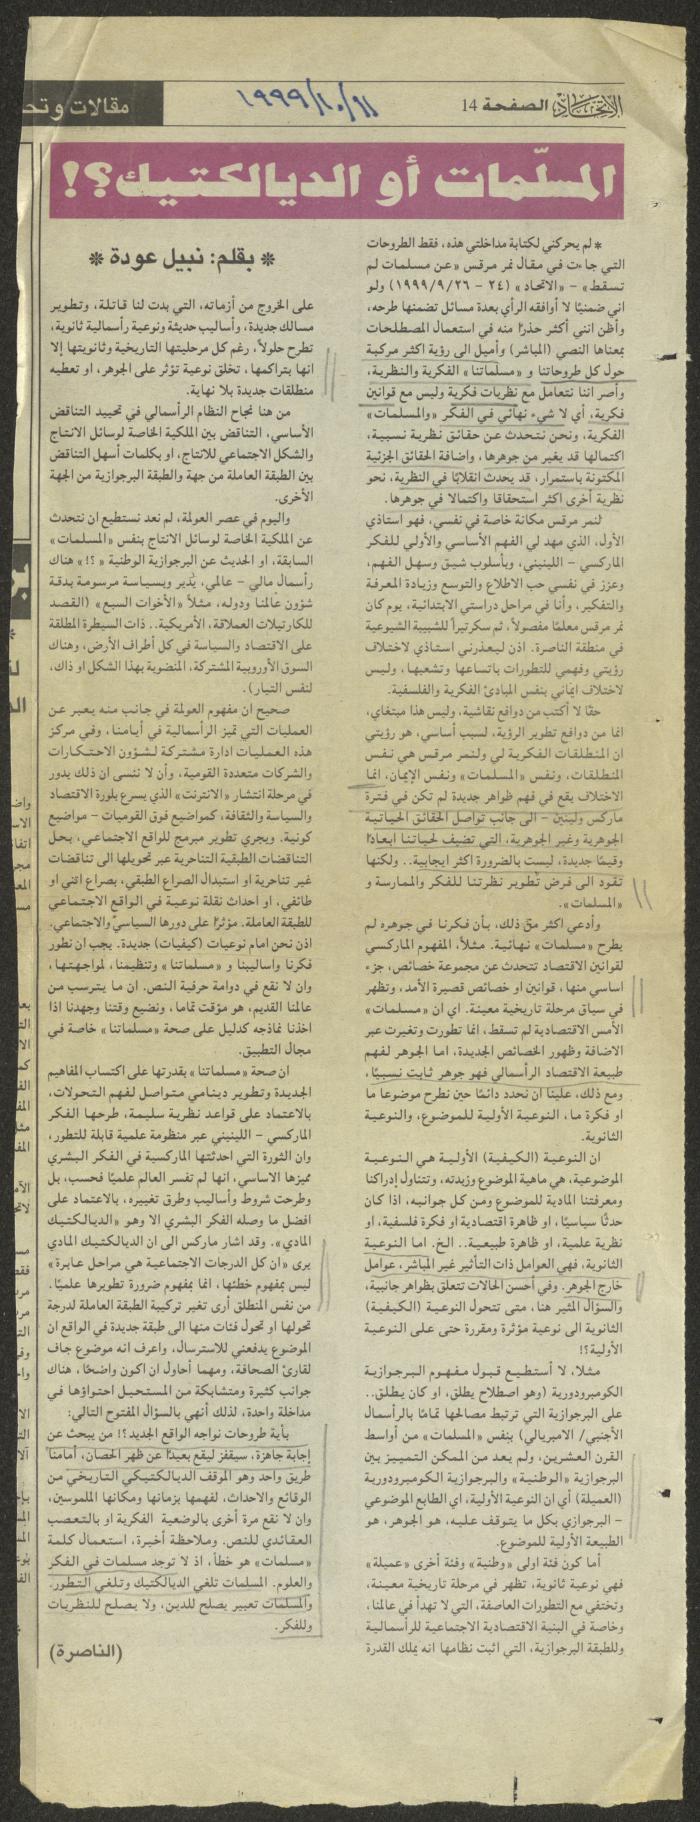 الاتحاد الصفحة 14
١٩٩٩/١٠/١١
مقالات وتحـ
المسلّمات أو الديالكتيك؟!
* بقلم: نبيل عودة *
* لم يحركني لكتابة مداخلتي هذه، فقط الطروحات
التي جاءت في مقال نمر مرقس «عن مسلمات لم
تسقط» - «الاتحاد» (٢٤ - ١٩٩٩/٩/٢٦) ولو
اني ضمنيًا لا أوافقه الرأي بعدة مسائل تضمنها طرحه،
وأظن انني أكثر حذرًا منه في استعمال المصطلحات
بمعناها النصي (المباشر) وأميل الى رؤية اكثر مركبة
حول كل طروحاتنا و «مسلّماتنا» الفكرية والنظرية،
وأصر اننا نتعامل مع نظريات فكرية وليس مع قوانين
فكرية، أي لا شيء نهائي في الفكر «والمسلمات»
الفكرية، ونحن نتحدث عن حقائق نظرية نسبية،
اكتمالها قد يغير من جوهرها، واضافة الحقائق الجزئية
المكتونة باستمرار، قد يحدث انقلابًا في النظرية، نحو
نظرية أخرى اكثر استحقاقا واكتمالا في جوهرها.
لنمر مرقس مكانة خاصة في نفسي، فهو استاذي
الأول، الذي مهد لي الفهم الأساسي والأولي للفكر
الماركسي - اللينيني، وبأسلوب شيق وسهل الفهم،
وعزز في نفسي حب الاطلاع والتوسع وزيادة المعرفة
والتفكير، وأنا في مراحل دراستي الابتدائية، يوم كان
نمر مرقس معلمًا مفصولاً، ثم سكرتيراً للشبيبة الشيوعية
في منطقة الناصرة. اذن ليعذرني استاذي لاختلاف
رؤيتي وفهمي للتطورات باتساعها وتشعبها، وليس
لاختلاف ايماني بنفس المبادئ الفكرية والفلسفية.
حقًا لا أكتب من دوافع نقاشية، وليس هذا مبتغاي،
انما من دوافع تطوير الرؤية، لسبب أساسي، هو رؤيتي
ان المنطلقات الفكرية لي ولنمر مرقس هي نفس
المنطلقات، ونفس «المسلمات» ونفس الإيمان، انما
الاختلاف يقع في فهم ظواهر جديدة لم تكن في فترة
ماركس ولينين - الى جانب تواصل الحقائق الحياتية
الجوهرية وغير الجوهرية، التي تضيف لحياتنا ابعادًا
وقيمًا جديدة، ليست بالضرورة اكثر ايجابية.. ولكنها
تقود الى فرض تطوير نظرتنا للفكر والممارسة و
«المسلمات».
وأدعي اكثر من ذلك، بأن فكرنا في جوهره لم
يطرح «مسلمات» نهائية. مثلاً، المفهوم الماركسي
لقوانين الاقتصاد تتحدث عن مجموعة خصائص، جزء
اساسي منها، قوانين او خصائص قصيرة الأمد، وتظهر
في سياق مرحلة تاريخية معينة. اي ان «مسلمات»
الأمس الاقتصادية لم تسقط، انما تطورت وتغيرت عبر
الاضافة وظهور الخصائص الجديدة، اما الجوهر لفهم
طبيعة الاقتصاد الرأسمالي فهو جوهر ثابت نسبيًا،
ومع ذلك، علينا ان نحدد دائمًا حين نطرح موضوعا ما
او فكرة ما، النوعية الأولية للموضوع، والنوعية
الثانوية.
ان النوعية (الكيفية) الأولية هي النوعية
الموضوعية، هي ماهية الموضوع وزبدته، وتتناول إدراكنا
ومعرفتنا المادية للموضوع ومن كل جوانبه، اذا كان
حدثًا سياسيًا، او ظاهرة اقتصادية او فكرة فلسفية، او
نظرية علمية، او ظاهرة طبيعية.. الخ. اما النوعية
الثانوية، فهي العوامل ذات التأثير غير المباشر، عوامل
خارج الجوهر. وفي أحسن الحالات تتعلق بظواهر جانبية،
والسؤال المثير هنا، متى تتحول النوعية (الكيفية)
الثانوية الى نوعية مؤثرة ومقررة حتى على النوعية
الأولية؟!
مثلا، لا أستطيع قبول مفهوم البرجوازية
الكومبرودورية (وهو اصطلاح يطلق، او كان يطلق..
على البرجوازية التي ترتبط مصالحها تمامًا بالرأسمال
الأجنبي/ الامبريالي) بنفس «المسلمات» من أواسط
القرن العشرين، ولم يعد من الممكن التمييز بين
البرجوازية «الوطنية» والبرجوازية الكومبرودورية
(العميلة) أي ان النوعية الأولية، اي الطابع الموضوعي
- البرجوازي بكل ما يتوقف عليه، هو الجوهر، هو
الطبيعة الأولية للموضوع.
أما كون فئة اولى «وطنية» وفئة أخرى «عميلة»
فهي نوعية ثانوية، تظهر في مرحلة تاريخية معينة،
وتختفي مع التطورات العاصفة، التي لا تهدأ في عالمنا،
وخاصة في البنية الاقتصادية الاجتماعية للرأسمالية
وللطبقة البرجوازية، التي اثبت نظامها انه يملك القدرة
على الخروج من أزماته، التي بدت لنا قاتلة، وتطوير
مسالك جديدة، وأساليب حديثة ونوعية رأسمالية ثانوية،
تطرح حلولاً، رغم كل مرحليتها التاريخية وثانويتها إلا
انها بتراكمها، تخلق نوعية تؤثر على الجوهر، او تعطيه
منطلقات جديدة بلا نهاية.
من هنا نجاح النظام الرأسمالي في تحييد التناقض
الأساسي، التناقض بين الملكية الخاصة لوسائل الانتاج
والشكل الاجتماعي للانتاج، او بكلمات أسهل التناقض
بين الطبقة العاملة من جهة والطبقة البرجوازية من الجهة
الأخرى.
واليوم في عصر العولمة، لم نعد نستطيع ان نتحدث
عن الملكية الخاصة لوسائل الانتاج بنفس «المسلمات»
السابقة، او الحديث عن البرجوازية الوطنية «؟!» هناك
رأسمال مالي - عالمي، يُدير وبسياسة مرسومة بدقة
شؤون عالمنا ودوله، مثلاً «الأخوات السبع» (القصد
للكارتيلات العملاقة، الأمريكية.. ذات السيطرة المطلقة
على الاقتصاد والسياسة في كل أطراف الأرض، وهناك
السوق الأوروبية المشتركة، المنضوية بهذا الشكل او ذاك،
لنفس التيار).
صحيح ان مفهوم العولمة في جانب منه يعبر عن
العمليات التي تميز الرأسمالية في أيامنا، وفي مركز
هذه العمليات ادارة مشتركة لشؤون الاحتكارات
والشركات متعددة القومية، وأن لا ننسى ان ذلك يدور
في مرحلة انتشار «الانترنت» الذي يسرع بلورة الاقتصاد
والسياسة والثقافة، كمواضيع فوق القوميات - مواضيع
كونية. ويجري تطوير مبرمج للواقع الاجتماعي، بحل
التناقضات الطبقية التناحرية عبر تحويلها الى تناقضات
غير تناحرية او استبدال الصراع الطبقي، بصراع اثني او
طائفي، او احداث نقلة نوعية في الواقع الاجتماعي
للطبقة العاملة. مؤثرًا على دورها السياسي والاجتماعي.
اذن نحن امام نوعيات (كيفيات) جديدة. يجب ان نطور
فكرنا واساليبنا و «مسلماتنا» وتنظيمنا، لمواجهتها،
وان لا نقع في دوامة حرفية النص. ان ما يترسب من
عالمنا القديم، هو مؤقت تماما، ونضيع وقتنا وجهدنا اذا
اخذنا نماذجه كدليل على صحة «مسلماتنا» خاصة في
مجال التطبيق.
ان صحة «مسلماتنا» بقدرتها على اكتساب المفاهيم
الجديدة وتطوير دينامي متواصل لفهم التحولات،
بالاعتماد على قواعد نظرية سليمة، طرحها الفكر
الماركسي - اللينيني عبر منظومة علمية قابلة للتطور،
وان الثورة التي احدثتها الماركسية في الفكر البشري
مميزها الاساسي، انها لم تفسر العالم علميًا فحسب، بل
وطرحت شروط وأساليب وطرق تغييره، بالاعتماد على
افضل ما وصله الفكر البشري الا وهو «الديالكتيك
المادي». وقد اشار ماركس الى ان الديالكتيك المادي
يرى «ان كل الدرجات الاجتماعية هي مراحل عابرة»
ليس بمفهوم خطئها، انما بمفهوم ضرورة تطويرها علميًا.
من نفس المنطلق أرى تغير تركيبة الطبقة العاملة لدرجة
تحولها او تحول فئات منها الى طبقة جديدة في الواقع ان
الموضوع يدفعني للاسترسال، واعرف انه موضوع جاف
لقارئ الصحافة، ومهما أحاول ان اكون واضحًا، هناك
جوانب كثيرة ومتشابكة من المستحيل احتواؤها في
مداخلة واحدة، لذلك أنهي بالسؤال المفتوح التالي:
بأية طروحات نواجه الواقع الجديد؟! من يبحث عن
إجابة جاهزة، سيقفز ليقع بعيدًا عن ظهر الحصان، أمامنا
طريق واحد وهو الموقف الديالكتيكي التاريخي من
الوقائع والاحداث، لفهمها بزمانها ومكانها الملموسين،
وان لا نقع مرة أخرى بالوضعية الفكرية او بالتعصب
العقائدي للنص. وملاحظة أخيرة، استعمال كلمة
«مسلمات» هو خطأ، اذ لا توجد مسلمات في الفكر
والعلوم. المسلمات تلغي الديالكتيك وتلغي التطور.
والمسلمات تعبير يصلح للدين، ولا يصلح للنظريات
وللفكر.
(الناصرة)